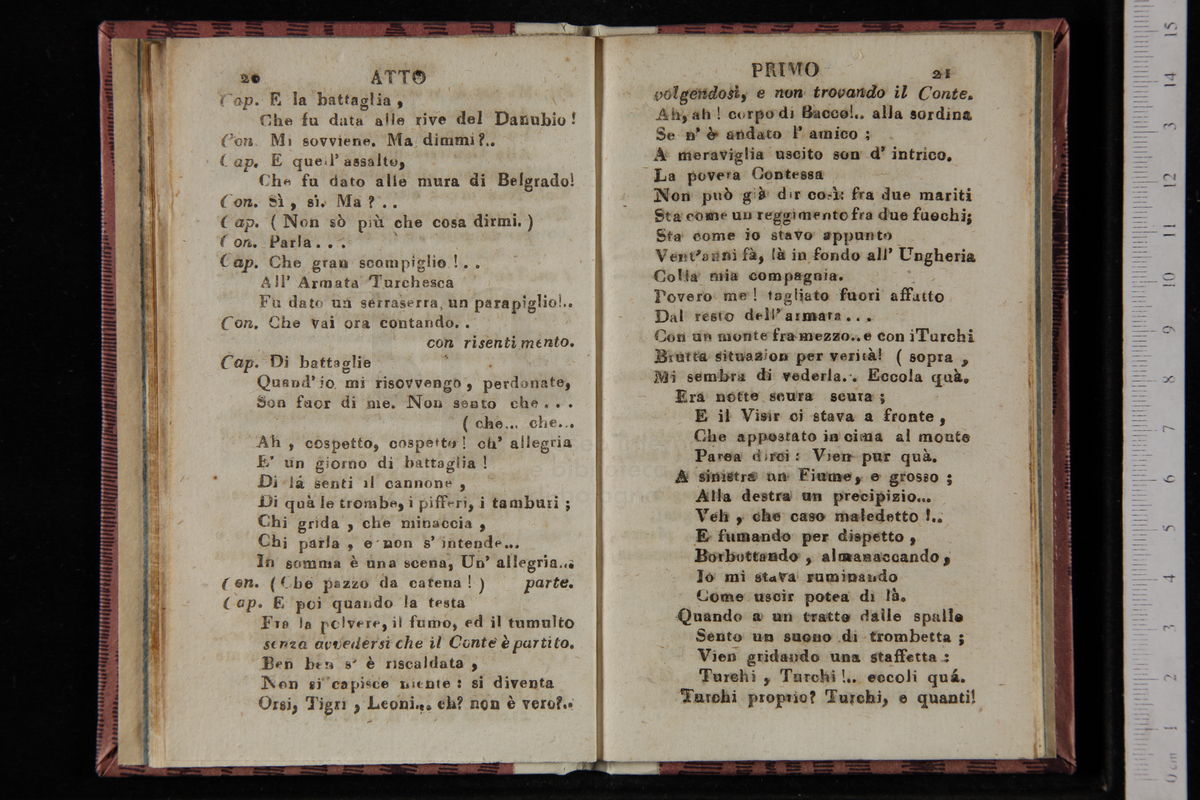 20 ATTO
Cap. E la battaglia ,
Che fu data alle rive del Danubio !
Con. Mi sovviene. Ma dimmi?..
Cap. E quell' assalto,
Che fu dato alle mura di Belgrado!
Con. Sì , sì. Ma ? . .
Cap. ( Non sò più che cosa dirmi. )
Con. Parla . . .
Cap. Che gran scompiglio ! . .
All' Armata Turchesca
Fu dato un serraserra, un parapiglio!..
Con. Che vai ora contando. .
con risentimento.
Cap. Di battaglie
Quand' io mi risovvengo , perdonate,
Son fuor di me. Non sento che . . .
( che... che...
Ah , cospetto, cospetto ! ch' allegria
E' un giorno di battaglia !
Di là senti il cannone ,
Di quà le trombe, i pifferi, i tamburi ;
Chi grida , che minaccia ,
Chi parla , e non s' intende...
In somma è una scena, Un' allegria...
Con. ( Che pazzo da catena ! ) parte.
Cap. E poi quando la testa
Fra la polvere, il fumo, ed il tumulto
senza avvedersi che il Conte è partito.
Ben ben s' è riscaldata ,
Non si capisce niente : si diventa
Orsi, Tigri , Leoni... eh? non è vero?..
PRIMO 21
volgendosi, e non trovando il Conte.
Ah, ah ! corpo di Bacco!.. alla sordina
Se n' è andato l' amico ;
A meraviglia uscito son d' intrico.
La povera Contessa
Non può già dir così: fra due mariti
Sta come un reggimento fra due fuochi;
Sta come io stavo appunto
Vent' anni fà, là in fondo all' Ungheria
Colla mia compagnia.
Povero me ! tagliato fuori affatto
Dal resto dell' armata . . .
Con un monte fra mezzo.. e con i Turchi
Brutta situazion per verità! ( sopra ,
Mi sembra di vederla. . Eccola quà.
Era notte scura scura ;
E il Visir ci stava a fronte ,
Che appostato in cima al monte
Parea dirci : Vien pur quà.
A sinistra un Fiume, e grosso ;
Alla destra un precipizio...
Veh , che caso maledetto !..
E fumando per dispetto ,
Borbottando , almanaccando ,
Io mi stava ruminando
Come uscir potea di là.
Quando a un tratto dalle spalle
Sento un suono di trombetta ;
Vien gridando una staffetta :
Turchi , Turchi !.. eccoli quá.
Turchi proprio? Turchi, e quanti!